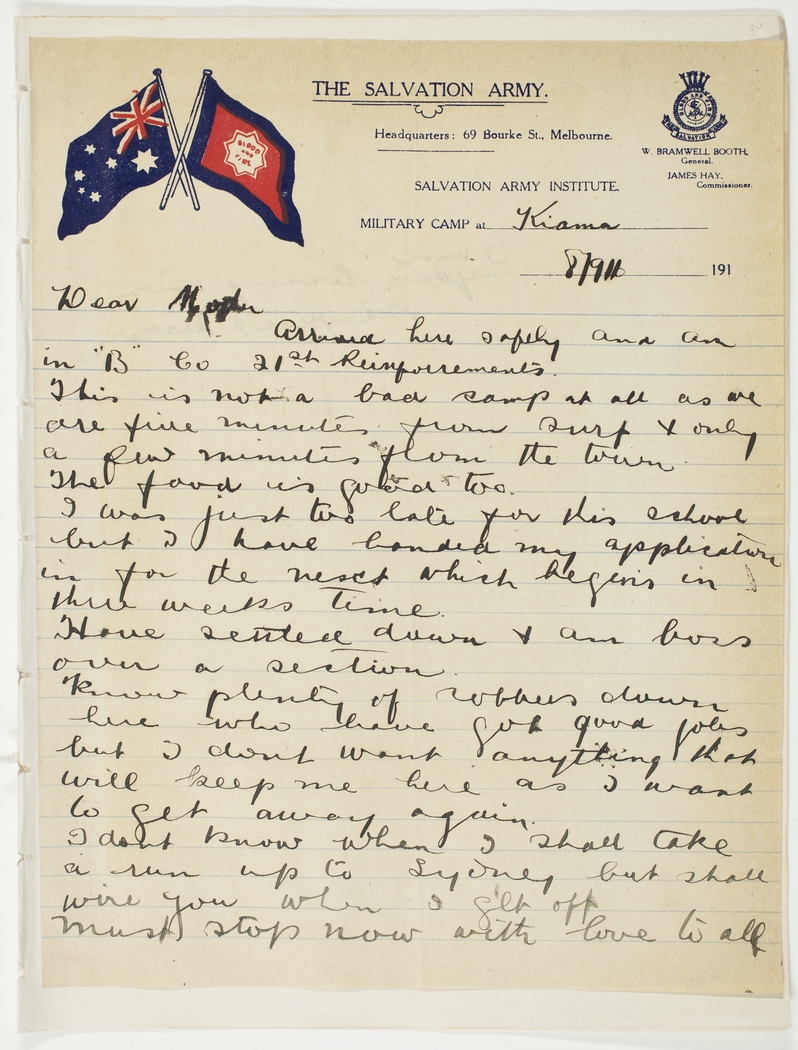 30
THE SALVATION ARMY.
Headquarters: 69 Bourke St., Melbourne.
BLOOD AND FIRE
BLOOD AND FIRE
SALVATION ARMY
W. BRAMWELL BOOTH,
General.
JAMES HAY,
Commissioner.
SALVATION ARMY INSTITUTE.
MILITARY CAMP at Kiama
8/9/16 191
Dear Mother
Arrived here safely and am
in "B" Co 21st Reinforcements.
This is not a bad camp at all as we
are five minutes from surf & only
a few minutes from the town.
The food is good too.
I was just too late for this school
but I have handed my application
in for the next which begins in
three weeks time.
Have settled down & am boss
over a section.
Know plenty of down
here who have got good jobs
but I dont want anything that
will keep me here as I want
to get away again.
I dont know when I shall take
a run up to Sydney but shall
wire you when I get off
Must stop now with love to all